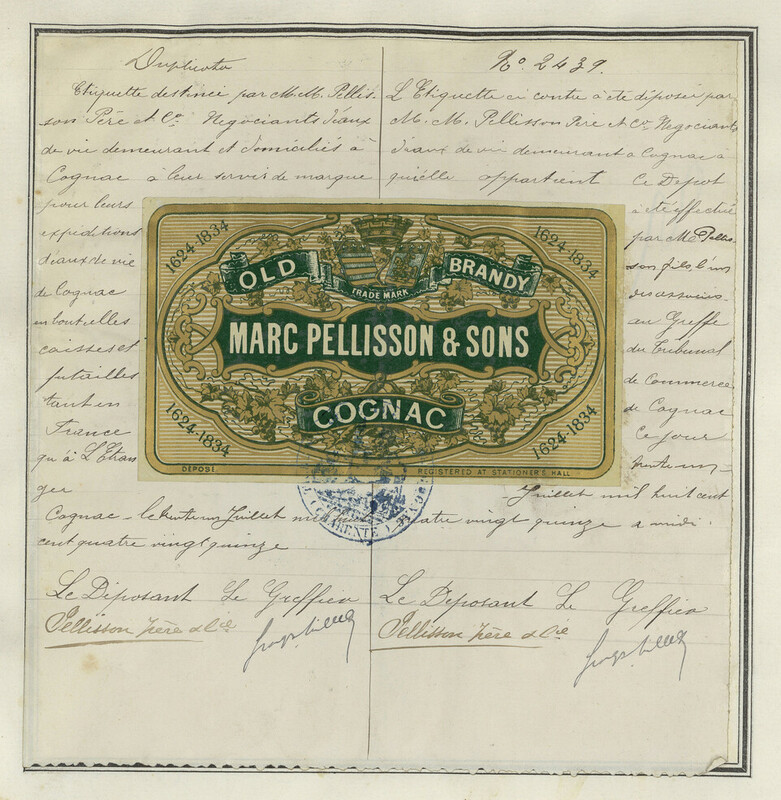 Duplicata
Etiquette destinée par M.M. Pellis-
son Père et Cie Negociants d'eaux
de vie demeurant et domiciliés à
Cognac à leur servir de marque
pour leurs
expéditions
d'eaux de vie
de Cognac
en bouteilles
caisses et
futailles
tant en
France
qu'à L'Etran
ger
Cognac le trente un Juillet mil
cent quatre vingt quinze
Le Déposant Le Greffier
Pellisson Père & Cie
No. 2439.
L'Etiquette ci contre à été déposée par
M. M. Pellisson Père et Cie Negociants
d'eaux de vie demeurant a Cognac à
qui elle appartient Ce Depot
à été effectué
par M. Pellis
son fils l'un
des associés
au Greffe
du Tribunal
de Commerce
de Cognac
Ce jour
trente un
Juillet mil huit cent
quatre vingt quinze a midi.
Le Déposant Le Greffier
Pellisson Père & Cie
1624-1834
1624-1834
OLD
BRANDY
TRADE MARK
MARC PELLISSON & SONS
COGNAC
1624-1834
1624-1834
DÉPOSÉ
REGISTERED AT STATIONER'S HALL
CHARENTE